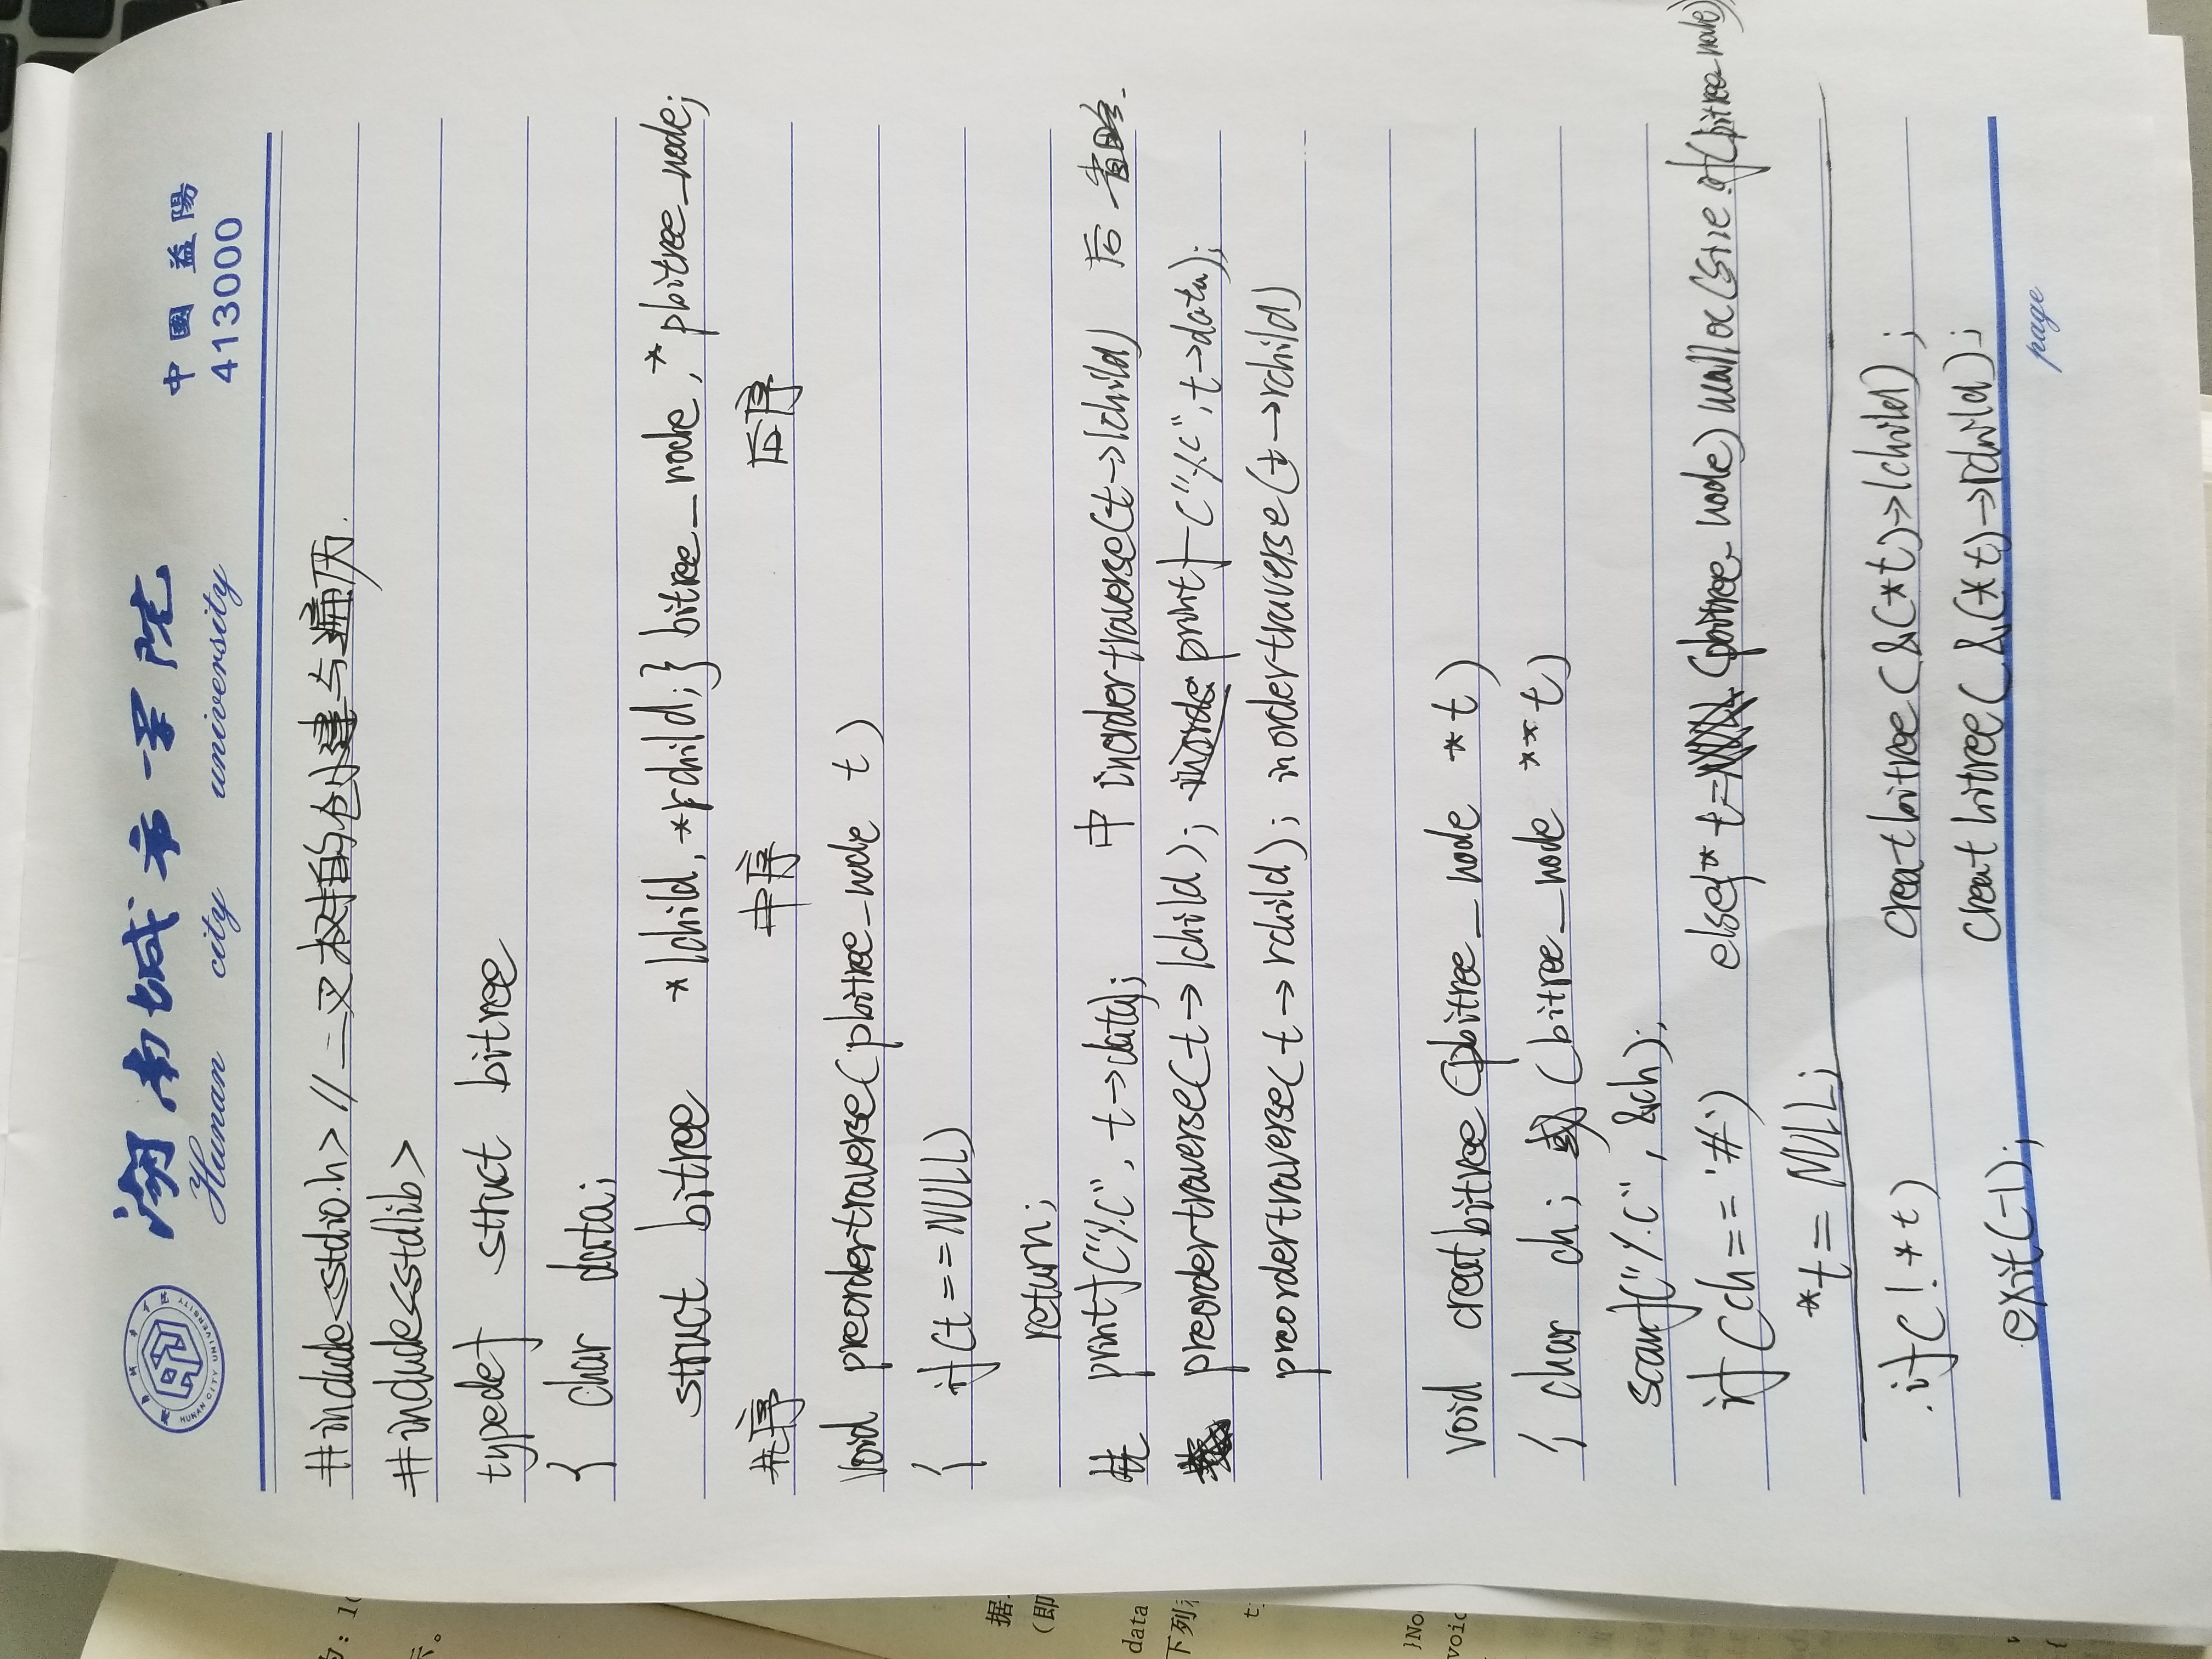 湖南城市学院
Hunan city university
中國 益陽
413000
HUNAN CITY UNIVERSITY
#include<stdio.h> //二叉树的创建与遍历.
#include<stdlib>
typedef struct bitree
{ char data;
struct bitree *lchild, *rchild; } bitree_node, *pbitree_node;
先序 中序 后序
void preordertraverse(pbitree_node t)
{ if(t==NULL)
return;
先 printf("%c", t→data); 中 inordertraverse(t→lchild) 后 省略.
preordertraverse(t→lchild); printf("%c", t→data);
preordertraverse(t→rchild); inordertraverse(t→rchild)
void creatbitree(pbitree_node *t)
{ char ch; 或 (bitree_node **t)
scanf("%c", &ch);
if(ch=='#') else{*t=(pbitree_node)malloc(sizeof(bitree_node)
*t=NULL;
if(!*t) creatbitree(&(*t)→lchild);
exit(-1); creatbitree(&(*t)→rchild);
page
据
(即
data
下列
}No
voic
示。